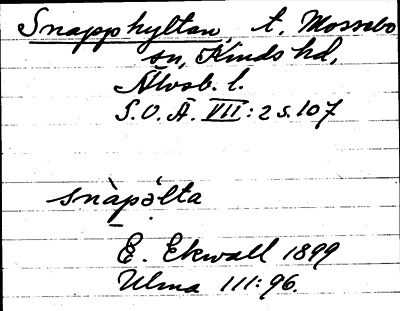 Snapphyltan, t. Mossebo
sn, Kinds hd,
Älvsb. l.
S.O.Ä. VII:2 s.107
snàpə́lta
E. Ekwall 1899
Ulma 111:96.